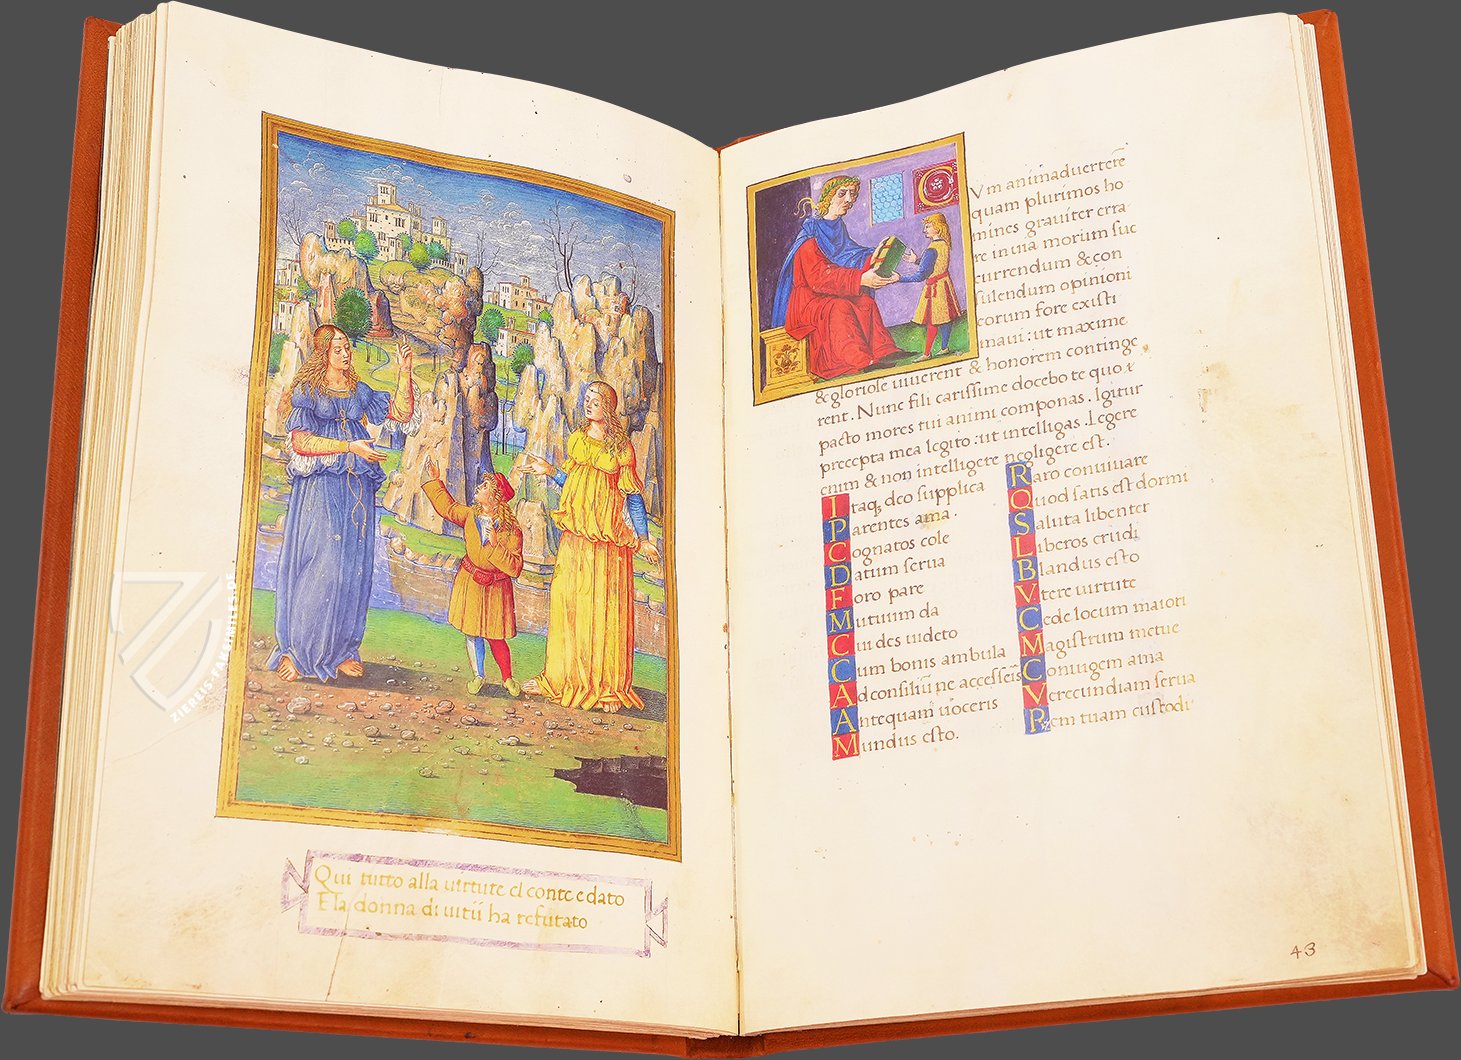 Qui tutto alla uirtute el conte e dato
E la donna di uitii ha refutato
ZIEREIS FAKSIMILES
C
Vm animaduerterē
quam plurimos ho
mines grauiter erra
re in uia morum suc
currendum & con
sulendum opinioni
eorum fore existi
maui: ut maxime
& gloriole uiuerent & honorem continge
rent. Nunc fili carissime docebo te quo
pacto mores tui animi componas. Igitur
precepta mea legito: ut intelligas. Legere
enim & non intelligere negligere est.
Itaq; deo supplica
Parentes ama.
Cognatos cole
Datum serua
Foro pare
Mutuum da
Cui des uideto
Cum bonis ambula
Ad consiliū ne accesseis
Antequam uoceris
Mundus esto.
Raro conuiuare
Quod satis est dormi
Saluta libenter
Liberos erudi
Blandus esto
Vtere uirtute
Cede locum maiori
Magistrum metue
Coniugem ama
Verecundiam serua
Rem tuam custodi
43